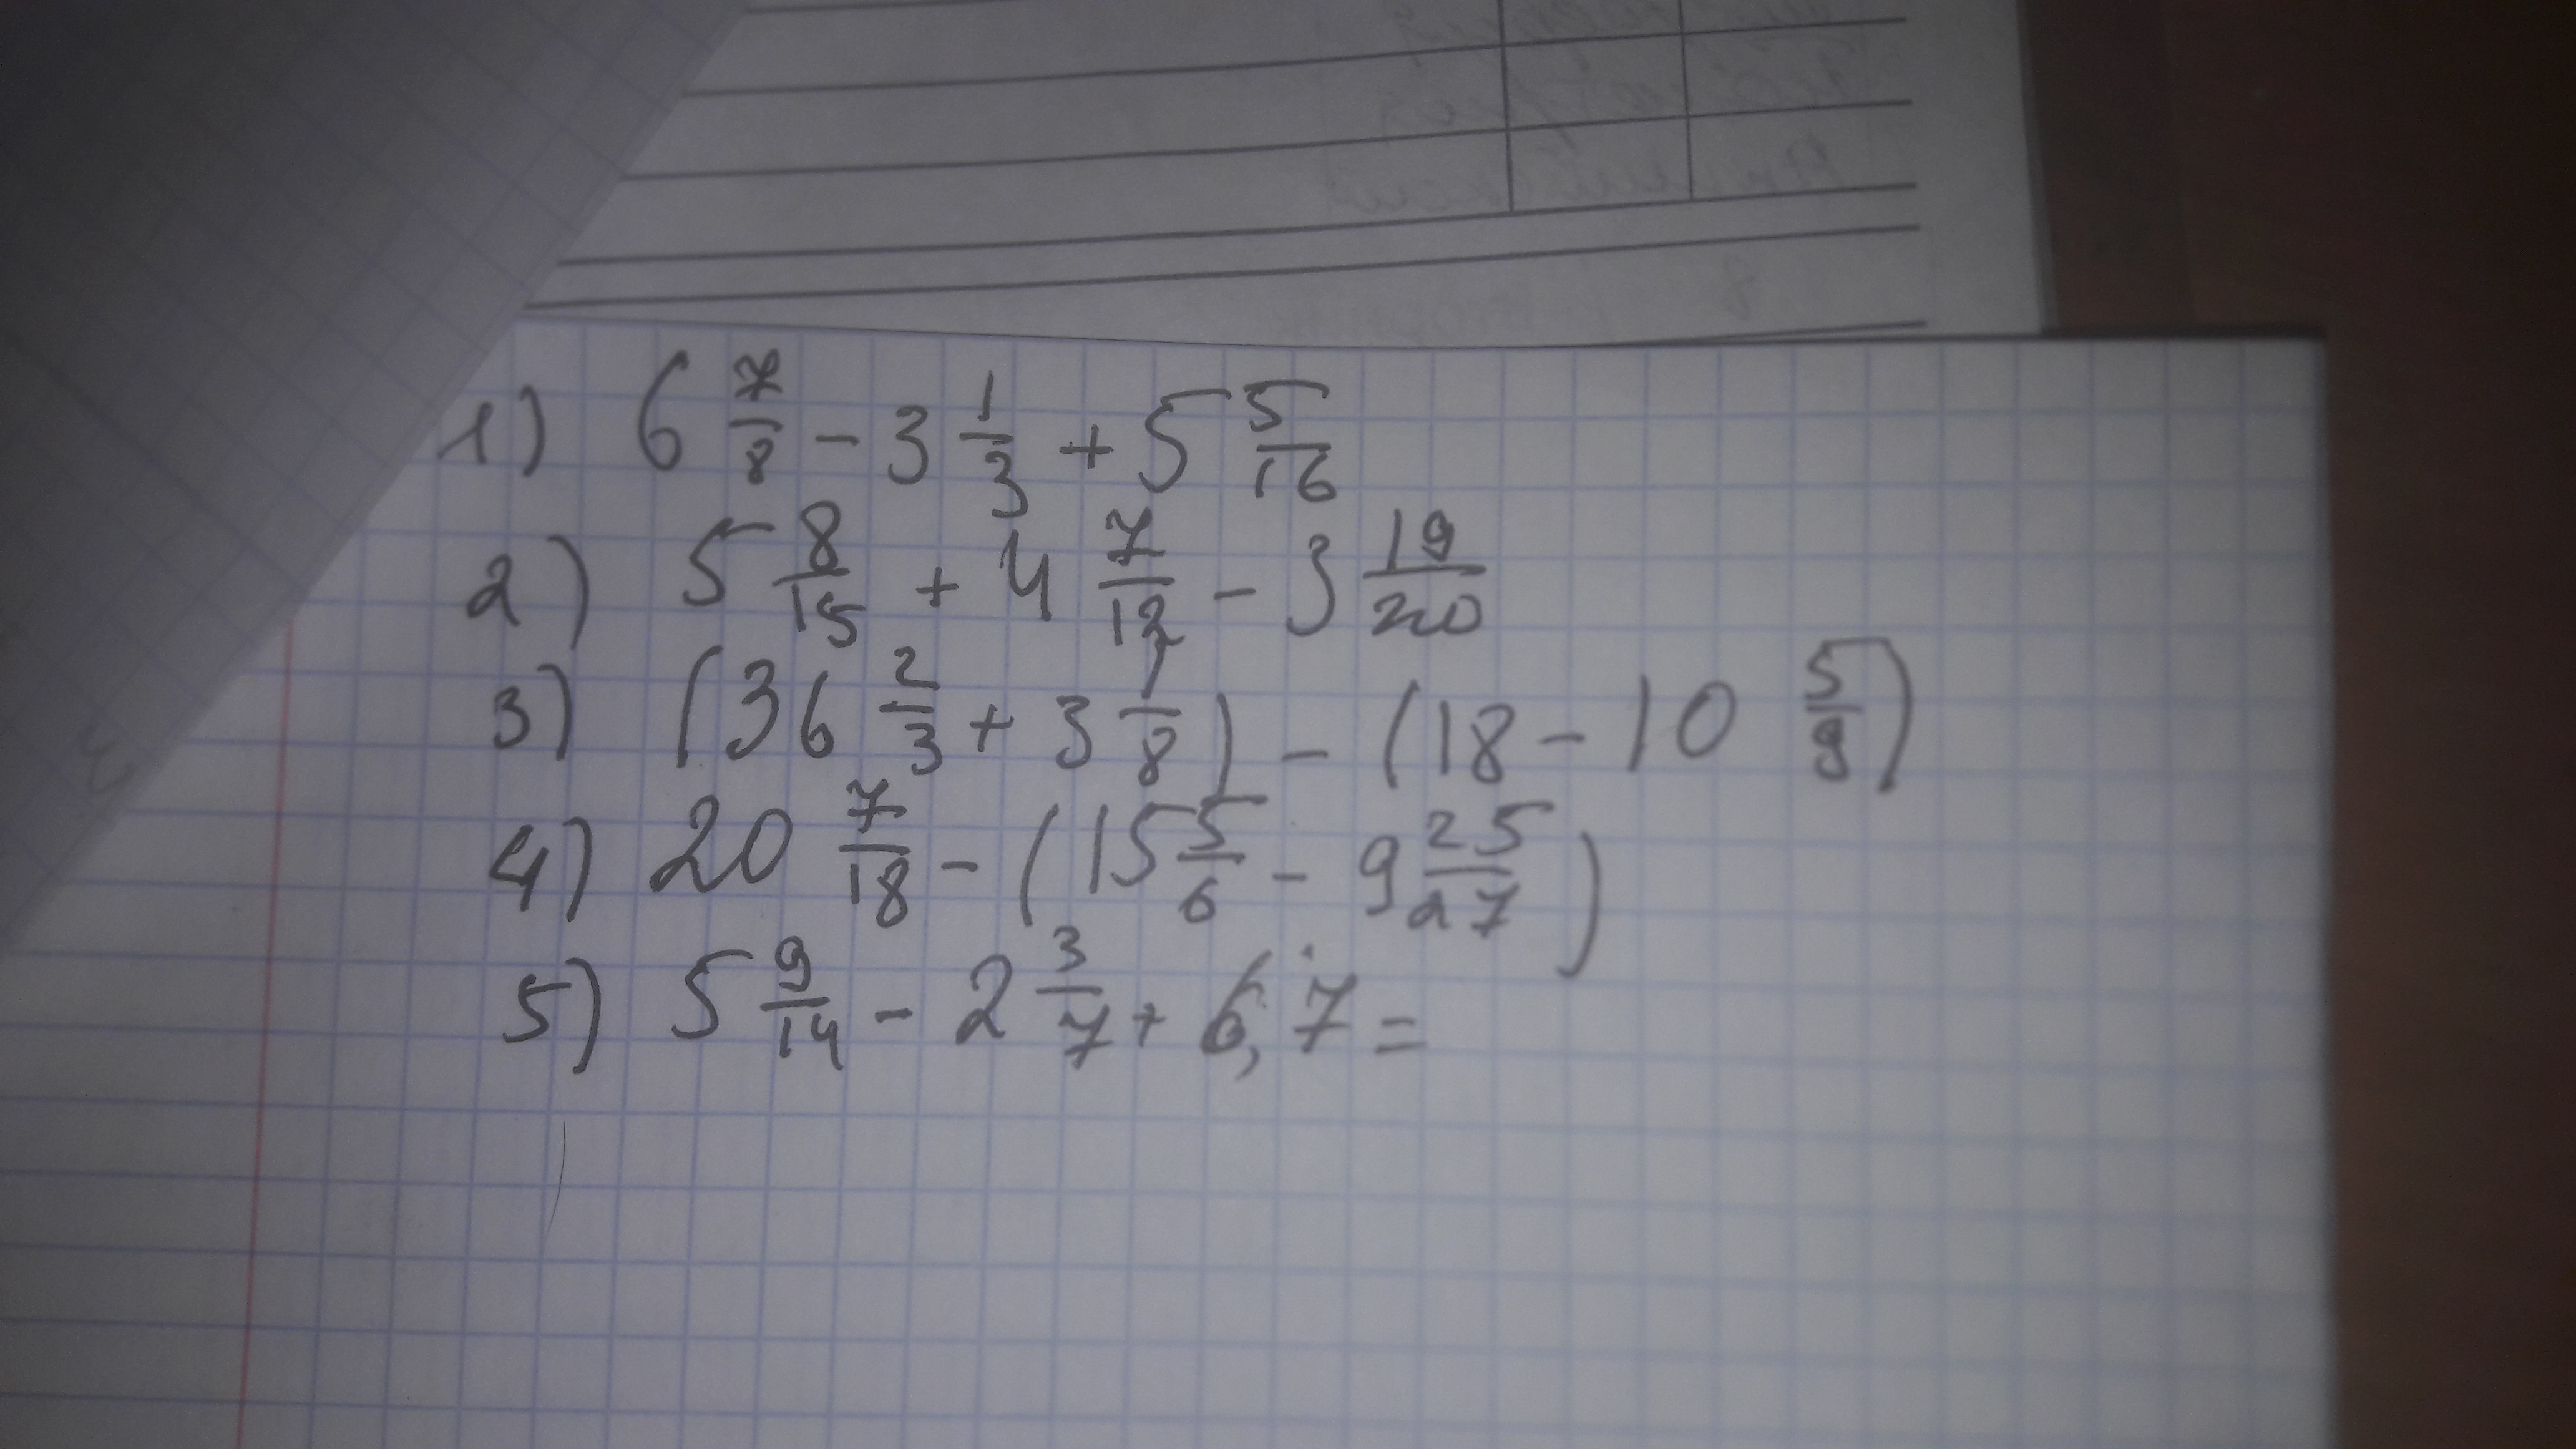 1) 6 7/8 - 3 1/3 + 5 5/16
2) 5 8/15 + 4 7/12 - 3 19/20
3) (36 2/3 + 3 1/8) - (18 - 10 5/9)
4) 20 7/18 - (15 5/6 - 9 25/27)
5) 5 9/14 - 2 3/7 + 6,7 =